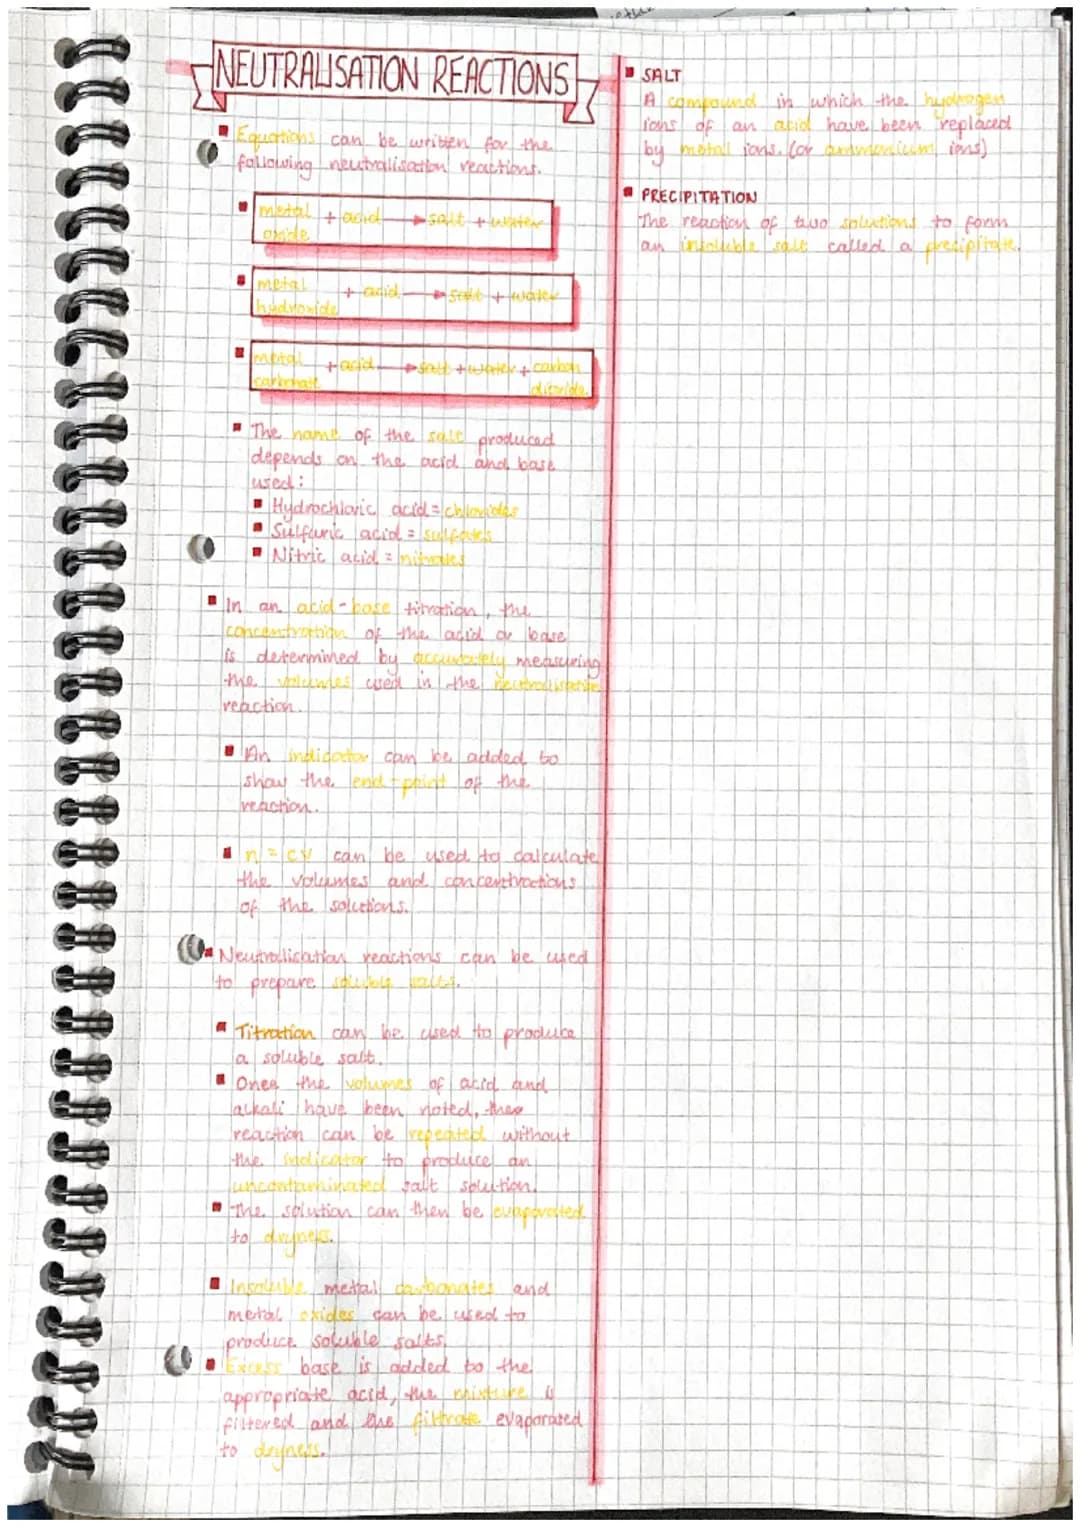 NEUTRALISATION REACTIONS
Equations can be written for the
following neutralisation reactions.
metal + acid → salt + water
oxide
metal + acid → salt + water
hydroxide
metal + acid → salt + water + carbon
carbonate dioxide
The name of the salt produced
depends on the acid and base
used:
Hydrochloric acid = chlorides
Sulfuric acid = sulfates
Nitric acid = nitrates
In an acid-base titration, the
concentration of the acid or base
is determined by accurately measuring
the volumes used in the neutralisation
reaction.
An indicator can be added to
show the end-point of the
reaction.
n = cv can be used to calculate
the volumes and concentrations
of the solutions.
Neutralisation reactions can be used
to prepare soluble salts.
Titration can be used to produce
a soluble salt.
Once the volumes of acid and
alkali have been noted, the
reaction can be repeated without
the indicator to produce an
uncontaminated salt solution.
The solution can then be evaporated
to dryness.
Insoluble metal carbonates and
metal oxides can be used to
produce soluble salts.
Excess base is added to the
appropriate acid, the mixture is
filtered and the filtrate evaporated
to dryness.
SALT
A compound in which the hydrogen
ions of an acid have been replaced
by metal ions. (or ammonium ions)
PRECIPITATION
The reaction of two solutions to form
an insoluble salt called a precipitate.